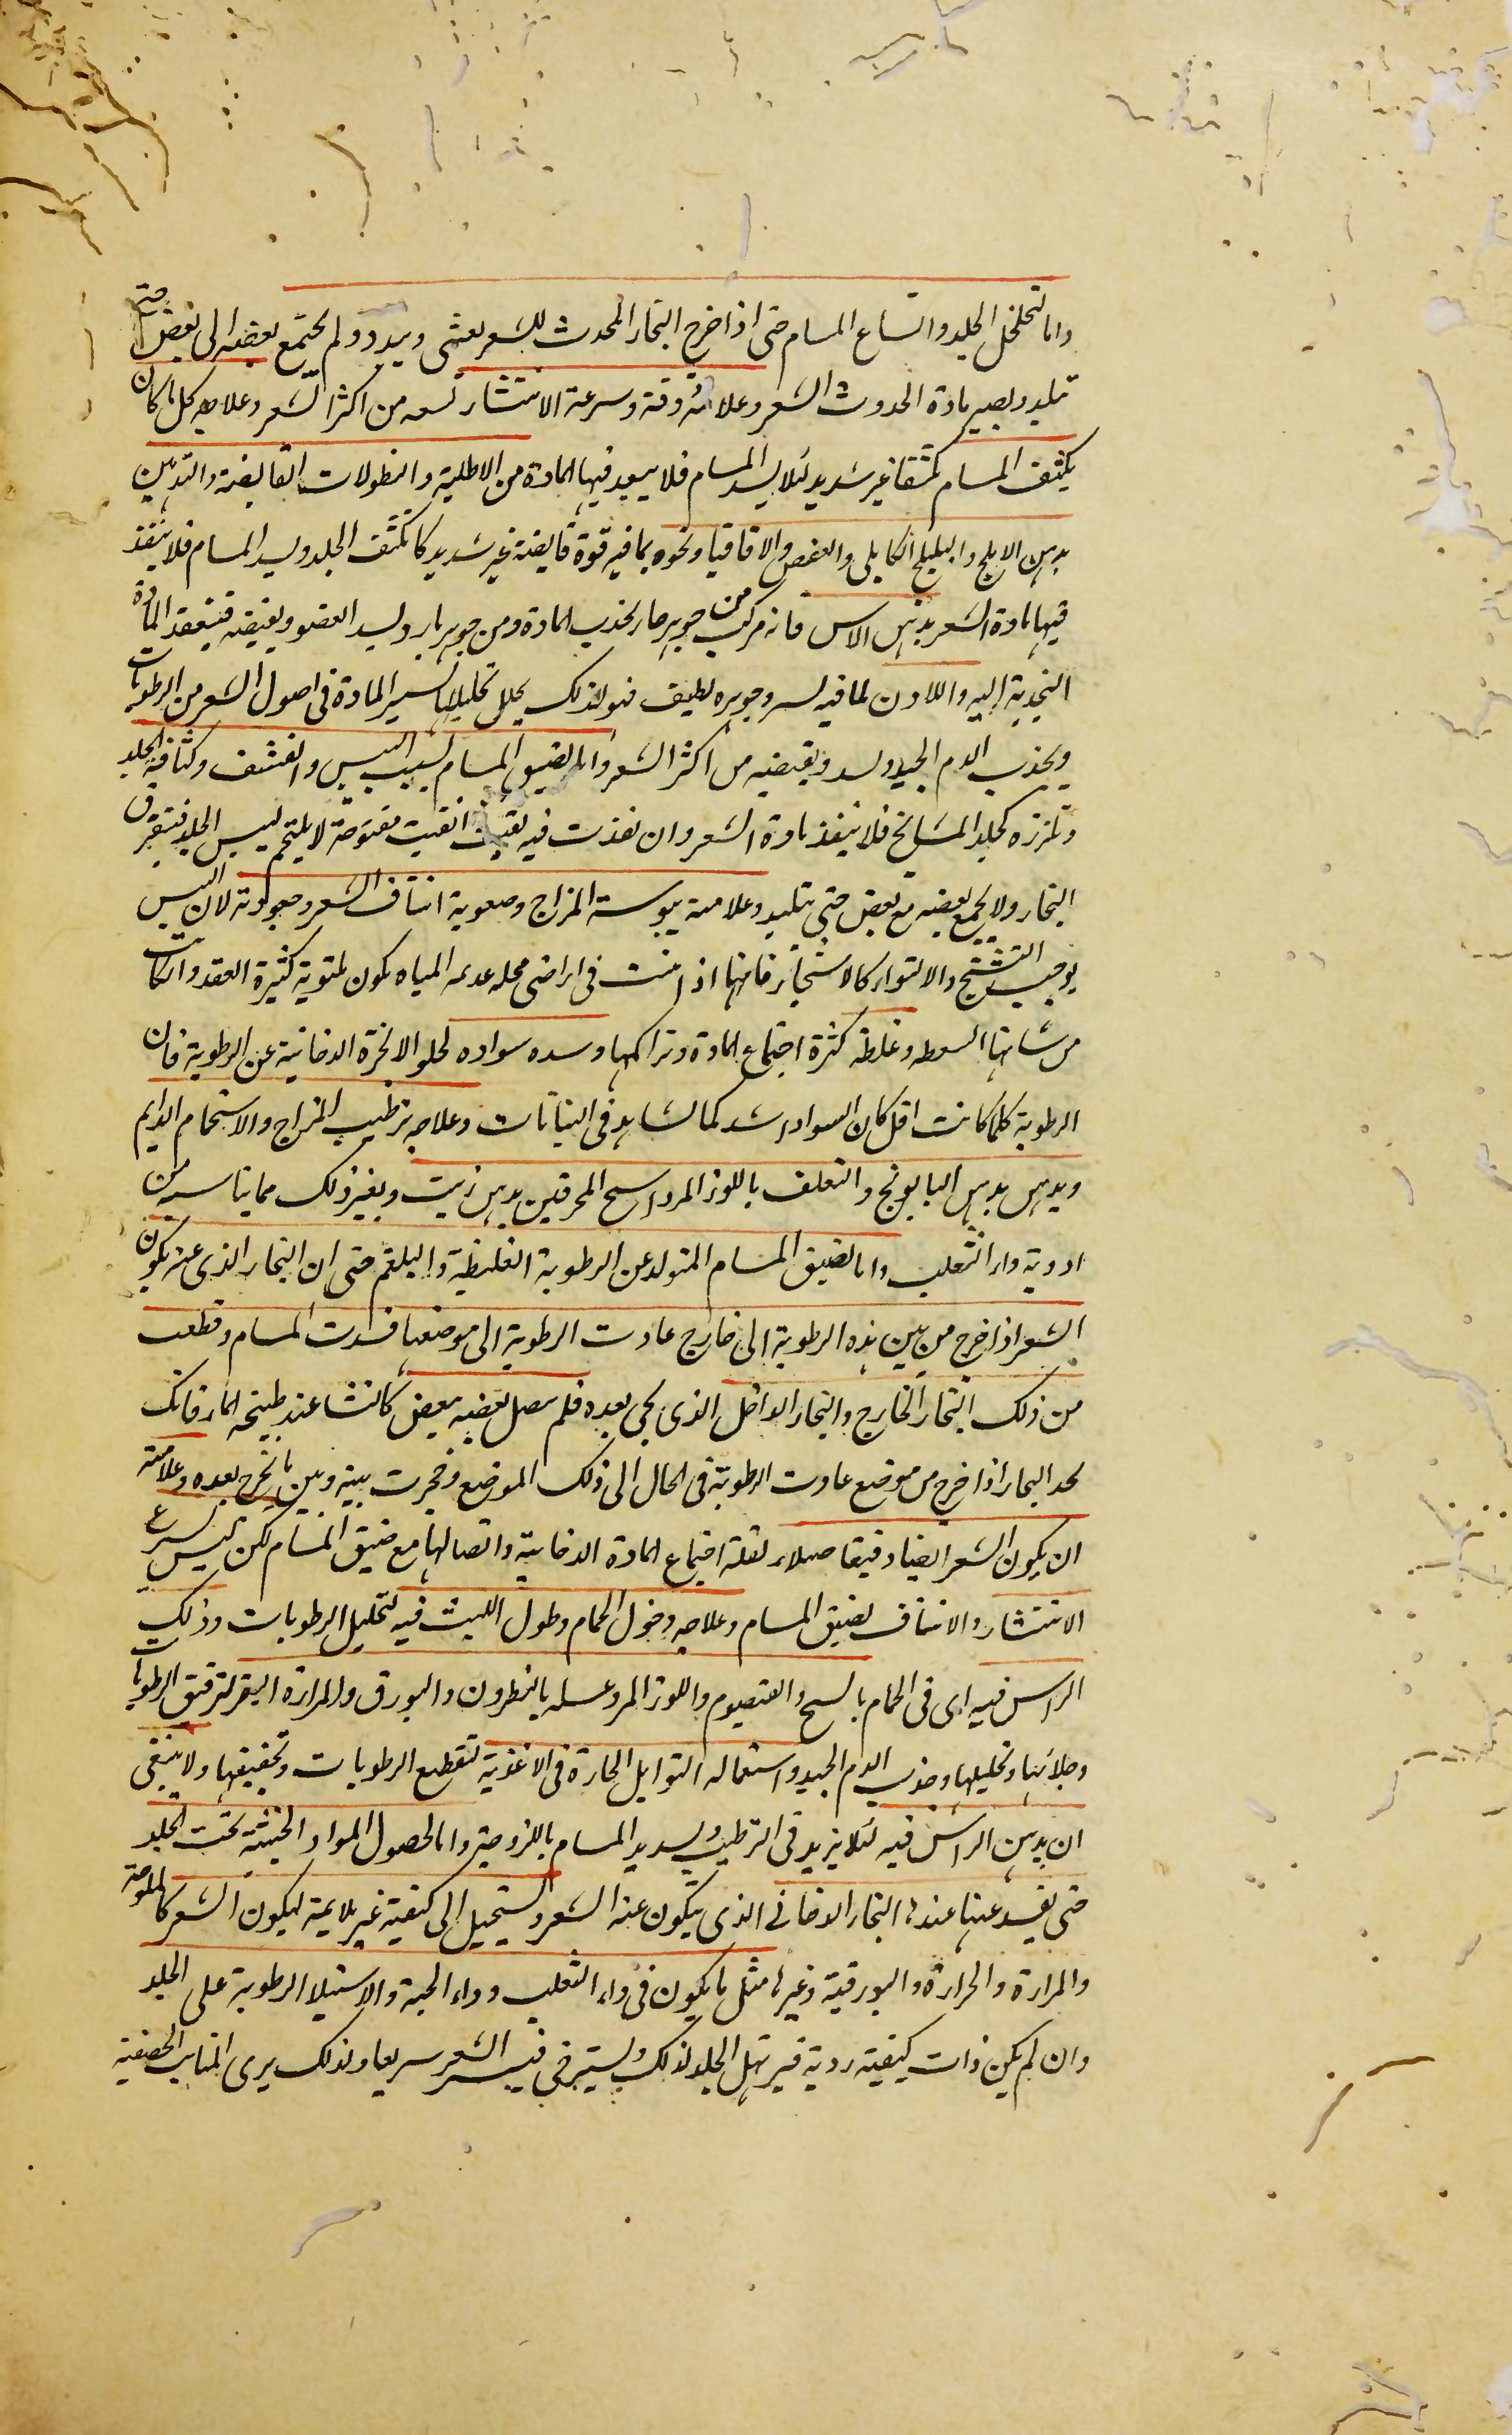 واما لتخلخل الجلد واتساع المسام حتى اذا خرج البخار المحدث للشعر يفشى ويبدد ولم يجتمع بعضه الى بعض حتى
تلبد ويصير مادة الحدوث الشعر وعلامته رقته وسرعة الانتشار من اكثر الشعر وعلاجه كل ما كان
يكثف المسام تكثيفا غير شديد لئلا يسد المسام فلا يبعد فيها المادة من الاطلية والنطولات القابضة والتدهين
بدهن الاملج والهليلج الكابلى والعفص والاقاقيا ونحوه مما فيه قوة قابضة غير شديد كا تكثف الجلد ويسد المسام فلا ينفذ
فيها مادة الشعر بدهن الاس فانه مركب من جوهر حار يجذب المادة ومن جوهر بارد يشد العضو ويقبضه فينعقد المادة
المنجذبة اليه واللادن لما فيه وجوهره لطيف فهو لذلك يحلل تحليلا المادة فى اصول الشعر من الرطوبات
ويجذب الدم الجيد ويقبضه من اكثر الشعر واما لضيق المسام بسبب اليبس والقشف وكثافة الجلد
وتلززه كجلد المشايخ فلا ينفذ مادة الشعر وان نفذت فيه بقيت مفتوحة لا يلتحم ليبس الجلد فيتفرق
البخار ولا يجمع بعضه مع بعض حتى يتلبد وعلامته يبوسة المزاج وصعوبة انتتاف الشعر وجعودته لان اليبس
يوجب التشنج والالتواء كالاشجار فانها اذا نبتت فى اراضى محله عدمه المياه يكون ملتوية كثيرة العقد وان كانت
من شانها وغلظه كثرة اجتماع المادة وتراكمها وسده سواده لخلو الابخرة الدخانية عن الرطوبة فان
الرطوبة كلما كانت اقل كان السواد اشد كما يشاهد فى النباتات وعلاجه ترطيب المزاج والاستحمام الدايم
ويدهن بدهن البابونج والتعلف باللوز المر والمحرقين بدهن زيت وبغير ذلك مما يناسبه من
ادوية داء الثعلب واما لضيق المسام المتولد عن الرطوبة الغليظة والبلغم حتى ان البخار الذى عنه يكون
الشعر اذا خرج من بين هذه الرطوبة الى خارج عادت الرطوبة الى موضعها فسدت المسام وقطعت
من ذلك البخار الخارج والبخار الداخل الذى يجى بعده فلم يتصل بعضه ببعض كالنشا عند طبيخه المار فانك
تجد البخار اذا خرج من موضع عادت الرطوبة فى الحال الى ذلك الموضع وحجزت بينه وبين ما يخرج بعده وعلامته
ان يكون الشعر ايضا دقيقا لقلة اجتماع المادة الدخانية واتصالها مع ضيق المسام لكن ليس يسرع
الانتثار والانتتاف لضيق المسام وعلاجه دخول الحمام وطول اللبث فيه لتحليل الرطوبات ودلك
الراس فيه اى فى الحمام بالشيح والقيصوم واللوز المر وغسله بالنطرون والبورق والمرارة البقر لترقيق الرطوبات
وجلائها وتحليلها وجذب الدم الجيد واستعماله التوابل الحارة فى الاغذية لتقطيع الرطوبات وتجفيفها ولا ينبغى
ان يدهن الراس فيه لئلا يزيد فى الترطيب ويسد يد المسام باللزوجة واما لحصول المواد الخبيثة تحت الجلد
حتى يفسد عنها عندها البخار الدخانى الذى يتكون عنه الشعر ويستحيل الى كيفية غير ملايمة ليكون الشعر كالملوحة
والمرارة والحرارة والبورقية وغيرها مثل ما يكون فى داء الثعلب وداء الحية والاستيلا الرطوبة على الجلد
وان لم يكن ذات كيفية ردية فيرهل الجلد لذلك ويسترخى فينتثر الشعر سريعا ولذلك يرى المنابت الخصفية